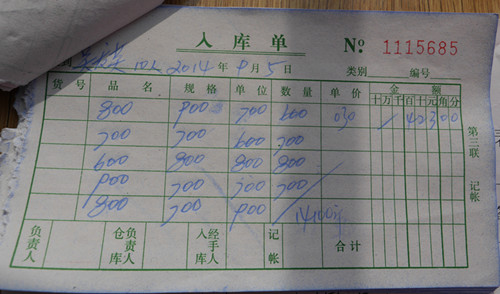 入库单 № 1115685
2014年9月5日 类别 编号
货号 品名 规格 单位 数量 单价 金额
十万千百十元角分
800 900 700 600 030 / 4 2 3 0 0
700 700 600 700
600 800 800 800
900 700 700 700
800 700 900 / 14100
负责人 仓库负责人 入库经手人 记帐 合计
第三联 记帐